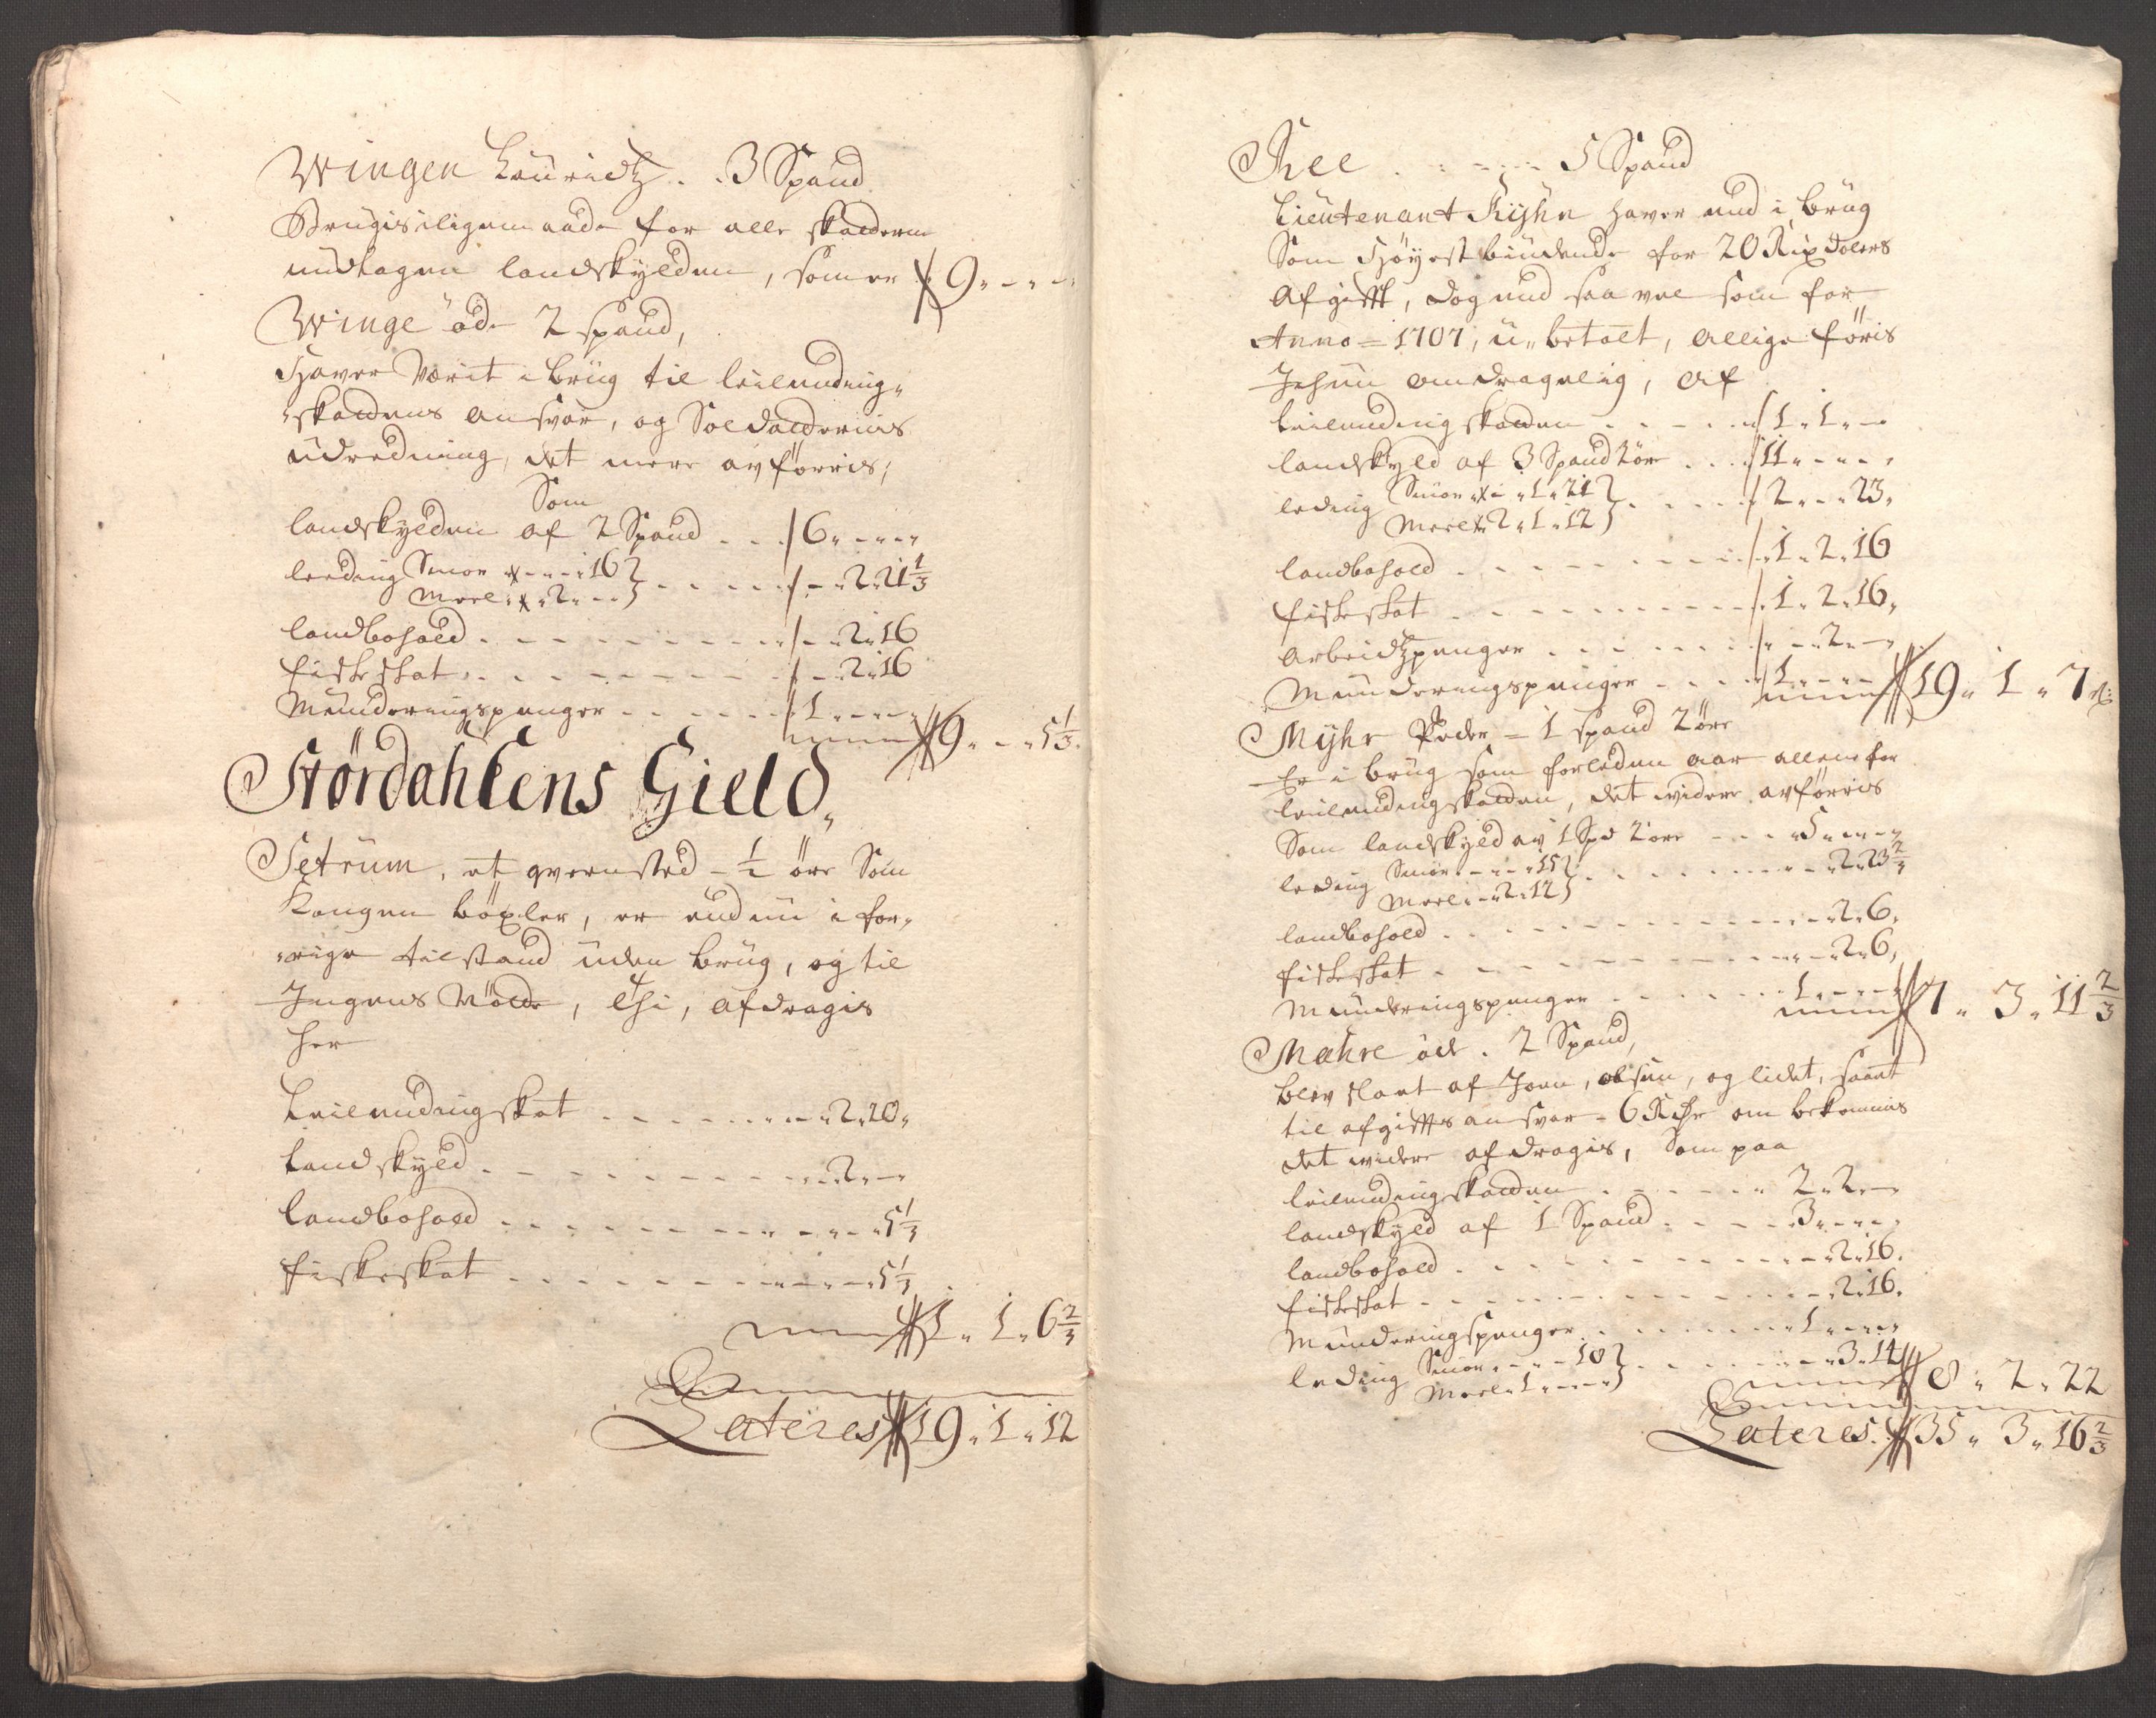 Wingen Lauridtz . . 3 Spand
Brugis iligemaade for alle skatterne
undtagen landskylden, som er 9 " - " -
Winge öde 2 spand,
Hafver Værit i brug til leilending„
„skattens ansvar, og Soldatternis
udredning, det mere avförris,
Som
landskylden af 2 Spand . . . 6 " - " -
leeding Smör - " - " 16
Meel " 2 " - . . . . - " 2 " 21 1/3
landbohold . . . . . . - " 2 " 16
fiskeskat . . . . . . - " 2 " 16
Munderingspenger . . . . . 1 " - " -
9 " - " 5 1/3
Stördahlens Gield,
Setrum, et qvernsted - 1/2 öre Som
Kongen böxler, er endnu i for„
„rige tilstand uden brug, og til
Ingens Nötte, Thi, afdragis
her
Leilendingskat . . . . . - " 2 " 20 "
landskyld . . . . . . - " 2 " -
landbohold . . . . . . - " - " 5 1/3
fiskeskat . . . . . . - " - " 5 1/3
1 " 1 " 6 2/3
Lateres 19 " 1 " 12
Ree . . . . . 5 Spand
Lieutenant Kyhn haver end i brug
Som Höyestbiudende for 20 Rixdalers
Afgifft, dog end saa vel som for
Anno = 1707, u„betalt, Allige föris
Jesuu omdragelig, Af
leilendingskatten . . . . 1 " 1 " -
landskyld af 3 Spand 2 öre . . . 11 " - " -
leding Smör " 1 " 21
Meel " 2 " 1 " 12 . . . . 2 " - " 23 "
landbohold . . . . . . 1 " 2 " 16
fiskeskat . . . . . . 1 " 2 " 16 "
Arbeidtzpenger . . . . . - " 2 " -
Munderingspenger . . . . 1 " - " -
19 " 1 " 7
Myhr Peder = 1 spand 2 öre
Er i brug som forleden aar allene for
leilendingskatten, det widere avförris
Som landskyld av 1 Spd 2 öre - - - 5 " - " -
leding Smör - " - " 15
Meel - " 2 " 12 . . . . . - " 2 " 23 2/3
landbohold . . . . . . - " 2 " 6 "
fiskeskat . . . . . . - " 2 " 6 "
Munderingspenger . . . . . 1 " - " -
7 " 3 " 11 2/3
Mæhre öde . 2 Spand,
blev slaat af Joen, olsen, og lidet, saaet
til afgiffts ansvar - 6 Rdr om bekommis
det widere afdragis, Som paa
leilendingskatten . . . . . 2 " 2 " -
landskyld af 1 Spand . . . . 3 " - " -
landbohold . . . . . . - " 2 " 16 "
fiskeskat . . . . . . - " 2 " 16 "
Munderingspenger . . . . . 1 " - " -
leding Smör " - " - 18
Meel " 1 " - " - . . . . - " 3 " 14
8 " 2 " 22
Lateres. 35 " 3 " 16 2/3